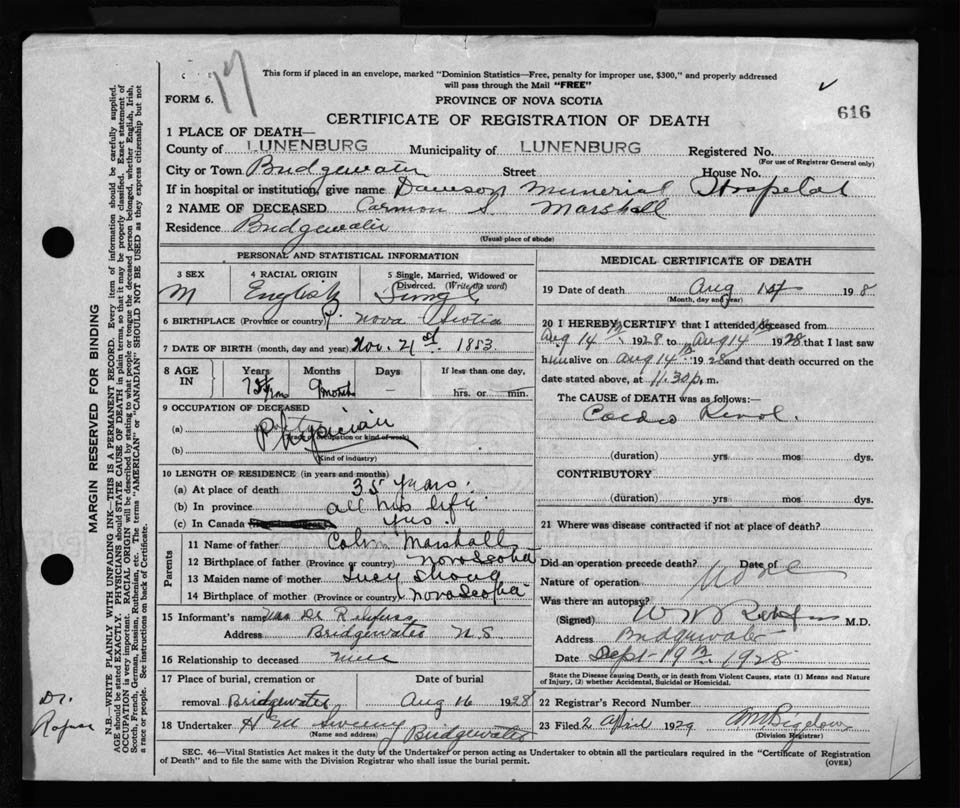 17
This form if placed in an envelope, marked "Dominion Statistics—Free, penalty for improper use, $300," and properly addressed
will pass through the Mail "FREE"
FORM 6.
PROVINCE OF NOVA SCOTIA
616
CERTIFICATE OF REGISTRATION OF DEATH
1 PLACE OF DEATH—
County of LUNENBURG Municipality of LUNENBURG Registered No.
(For use of Registrar General only)
City or Town Bridgewater Street House No.
If in hospital or institution, give name Dawson Memorial Hospital
2 NAME OF DECEASED Carmon S. Marshall
Residence Bridgewater
(Usual place of abode)
PERSONAL AND STATISTICAL INFORMATION
3 SEX
M
4 RACIAL ORIGIN
English
5 Single, Married, Widowed or
Divorced. (Write the word)
Single
6 BIRTHPLACE (Province or country) Nova Scotia
7 DATE OF BIRTH (month, day and year) Nov. 21st. 1853
8 AGE IN
Years Months Days If less than one day,
9 month – hrs. or min.
9 OCCUPATION OF DECEASED
(a) Physician
(Trade occupation or kind of work)
(b)
(Kind of industry)
10 LENGTH OF RESIDENCE (in years and months)
(a) At place of death 35 years.
(b) In province all his life
(c) In Canada yes.
Parents
11 Name of father Marshall
12 Birthplace of father (Province or country) Nova Scotia
13 Maiden name of mother Lucy
14 Birthplace of mother (Province or country) Nova Scotia
15 Informant's name Mrs Dr
Address Bridgewater N.S
16 Relationship to deceased
17 Place of burial, cremation or Date of burial
removal Bridgewater Aug 16 1928
18 Undertaker
(Name and address) Bridgewater
MEDICAL CERTIFICATE OF DEATH
19 Date of death Aug 198
(Month, day and year)
20 I HEREBY CERTIFY that I attended deceased from
Aug 14th 1928 to Aug 14 1928 that I last saw
him alive on Aug 14th 1928 and that death occurred on
date stated above, at 11.30 p. m.
The CAUSE OF DEATH was as follows:—
Cardio Renal.
(duration) yrs mos dys.
CONTRIBUTORY
(duration) yrs mos dys.
21 Where was disease contracted if not at place of death?
Did an operation precede death? Date of
Nature of operation
Was there an autopsy?
(Signed) M.D.
Address Bridgewater
Date Sept 19th 1928
State the Disease causing Death, or in death from Violent Causes, state (1) Means and Nature
of Injury, (2) whether Accidental, Suicidal or Homicidal.
22 Registrar's Record Number
23 Filed 2 April 1929
(Division Registrar)
SEC. 46—Vital Statistics Act makes it the duty of the Undertaker or person acting as Undertaker to obtain all the particulars required in the "Certificate of Registration
of Death" and to file the same with the Division Registrar who shall issue the burial permit.
(OVER)
MARGIN RESERVED FOR BINDING
N.B.—WRITE PLAINLY WITH UNFADING INK—THIS IS A PERMANENT RECORD. Every item of information should be carefully supplied.
AGE should be stated EXACTLY. PHYSICIANS should STATE CAUSE OF DEATH in plain terms, so that it may be properly classified. Exact statement of
OCCUPATION is very important. RACIAL ORIGIN will be described by stating to what people or tongue the deceased person belonged, whether English, Irish,
Scotch, French, German, Russian, Ruthenian, etc. The terms "AMERICAN" or "CANADIAN" SHOULD NOT BE USED as they express citizenship but not
a race or people. See instructions on back of Certificate.
Dr.